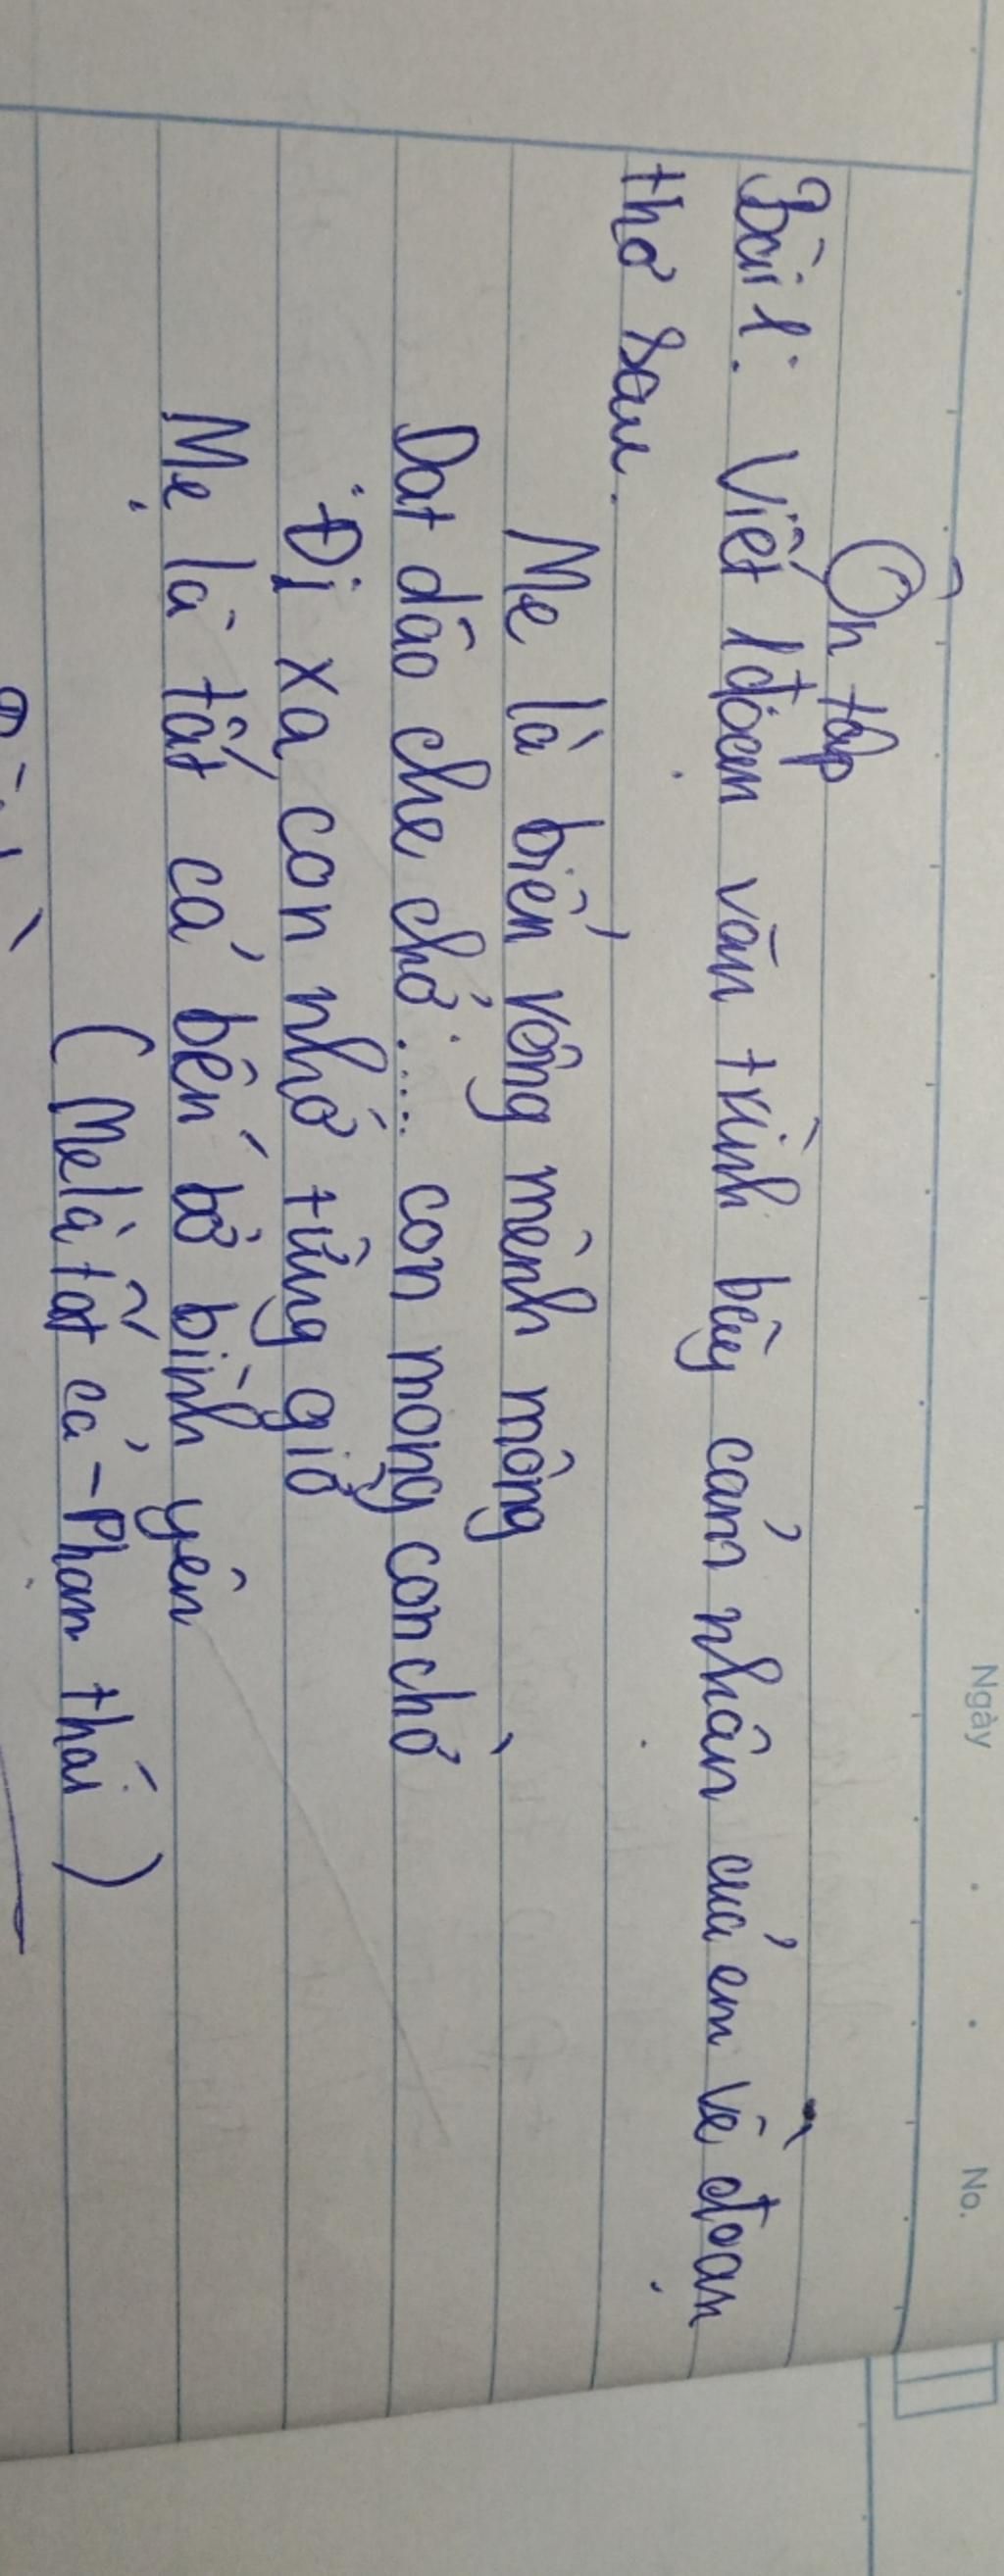 Ngày No.
Ôn tập
Bài 1: Viết 1 đoạn văn trình bày cảm nhận của em về đoạn
thơ sau.
Mẹ là biển rộng mênh mông
Dạt dào che chở.... con mong con chờ
Đi xa con nhớ từng giờ
Mẹ là tất cả bến bờ bình yên
(Mẹ là tất cả - Phạm thái)